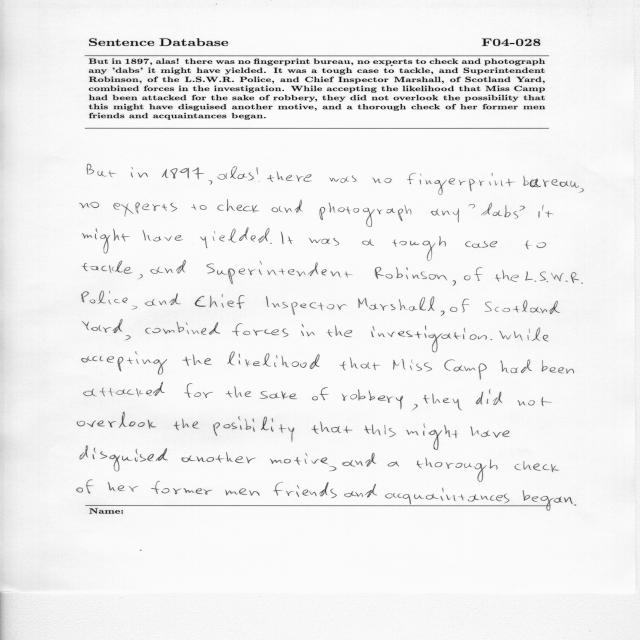 Sentence Database F04-028
But in 1897, alas! there was no fingerprint bureau, no experts to check and photograph
any 'dabs' it might have yielded. It was a tough case to tackle, and Superintendent
Robinson, of the L.S.W.R. Police, and Chief Inspector Marshall, of Scotland Yard,
combined forces in the investigation. While accepting the likelihood that Miss Camp
had been attacked for the sake of robbery, they did not overlook the possibility that
this might have disguised another motive, and a thorough check of her former men
friends and acquaintances began.
But in 1897, alas! there was no fingerprint bureau,
no experts to check and photograph any 'dabs' it
might have yielded. It was a tough case to
tackle, and Superintendent Robinson, of the L.S.W.R.
Police, and Chief Inspector Marshall, of Scotland
Yard, combined forces in the investigation. While
accepting the likelihood that Miss Camp had been
attacked for the sake of robbery, they did not
overlook the posibility that this might have
disguised another motive, and a thorough check
of her former men friends and acquaintances began.
Name: